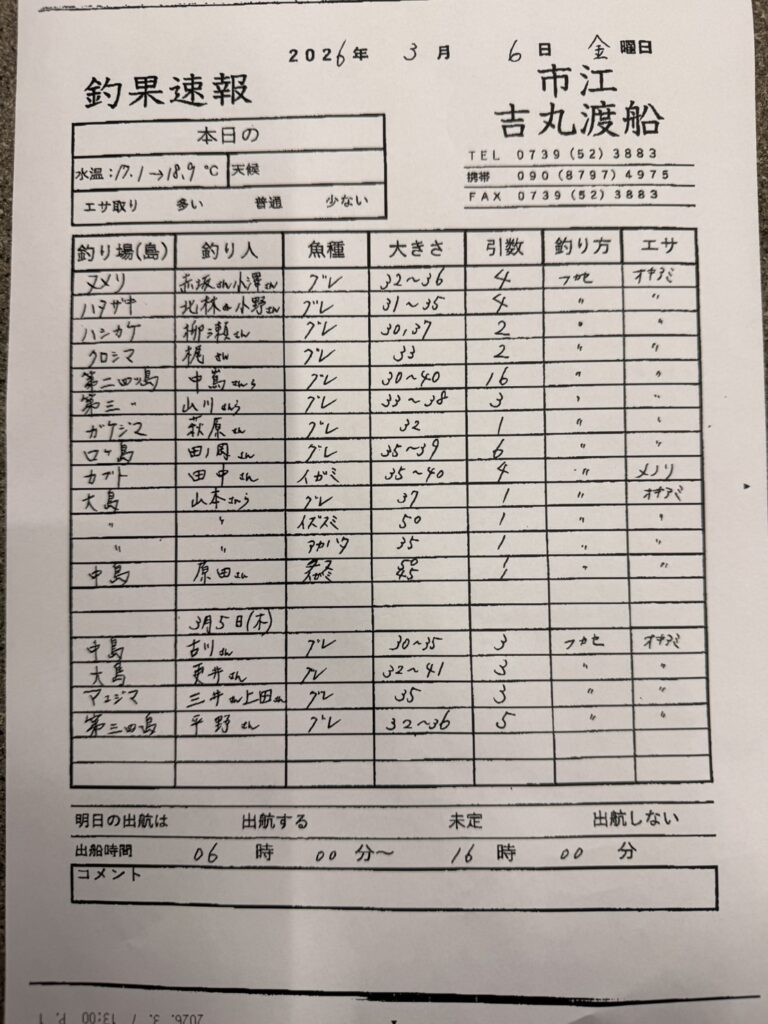 2026年 3月 6日 金曜日
釣果速報
市江
吉丸渡船
本日の
TEL 0739(52)3883
水温:17.1→18.9℃ 天候
携帯 090(8797)4975
エサ取り 多い 普通 少ない
FAX 0739(52)3883
釣り場(島) 釣り人 魚種 大きさ 引数 釣り方 エサ
ヌメリ 赤坂さん小澤さん グレ 32〜36 4 フカセ オキアミ
ハナザキ 北林さん小野さん グレ 31〜35 4 〃 〃
ハシカケ 柳瀬さん グレ 30,37 2 〃 〃
クロシマ 梶さん グレ 33 2 〃 〃
第二四ツ島 中嶌さんら グレ 30〜40 16 〃 〃
第三〃 山川さんら グレ 33〜38 3 〃 〃
ガケジマ 萩原さん グレ 32 1 〃 〃
ロク島 田ノ岡さん グレ 35〜39 6 〃 〃
カブト 田中さん イガミ 35〜40 4 〃 メノリ
大島 山本さんら グレ 37 1 〃 オキアミ
〃 〃 イズスミ 50 1 〃 〃
〃 〃 アカハタ 35 1 〃 〃
中島 原田さん イガミ 50 45 1 1 〃 〃
3月5日(木)
中島 古川さん グレ 30〜35 3 フカセ オキアミ
大島 更井さん グレ 32〜41 3 〃 〃
マエジマ 三井さん上田さん グレ 35 3 〃 〃
第三四島 平野さん グレ 32〜36 5 〃 〃
明日の出航は 出航する 未定 出航しない
出船時間 06時 00分〜 16時 00分
コメント
2026. 3. 7 13:00 P. 1